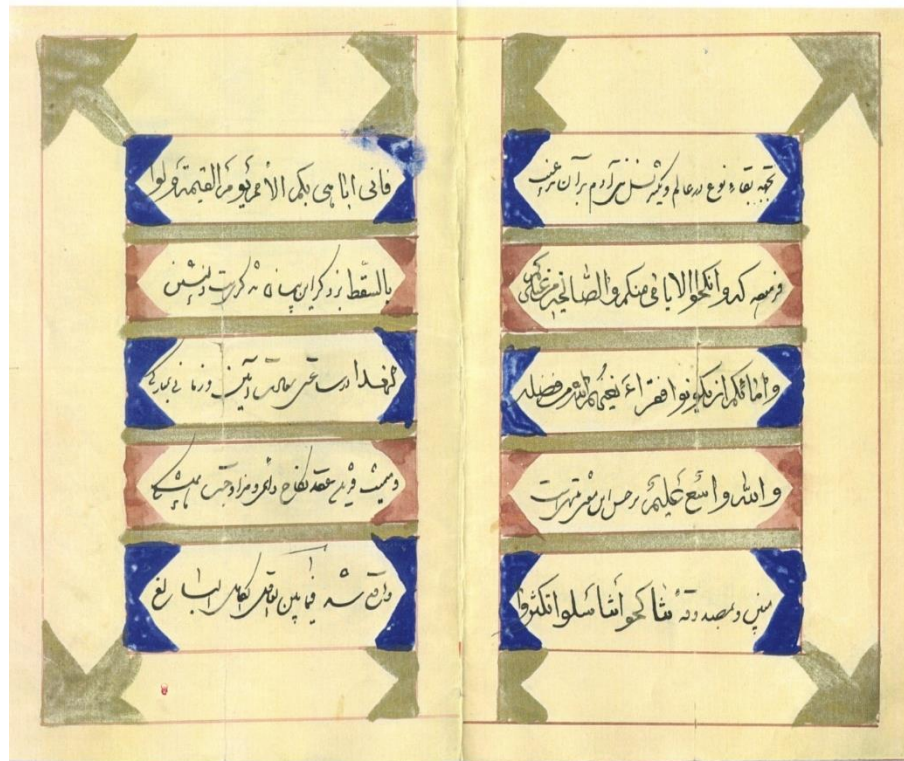 بجهة بقاءِ نوع در عالم و تکثیر نسل بنی آدم بر آن ترغیب
فرموده که وانکحوا الایامی منکم والصالحین من عبادکم
وامائکم ان یکونوا فقراءَ یغنهم الله من فضله
والله واسع علیم بر حسن این معنی است
مبین و مصدوقه تناکحوا تناسلوا تکثروا
فانی اباهی بکم الأمم یوم القیمة ولوا
بالسّقط بر ذکر این بیان دلنشین
لهذا در ساعتی سعادت آئین و زمانی مبارکی
و میمنت قرین عقد نکاح دائمی و مزاوجت همیشگی
واقع شد فیما بین العاقل الکامل البالغ